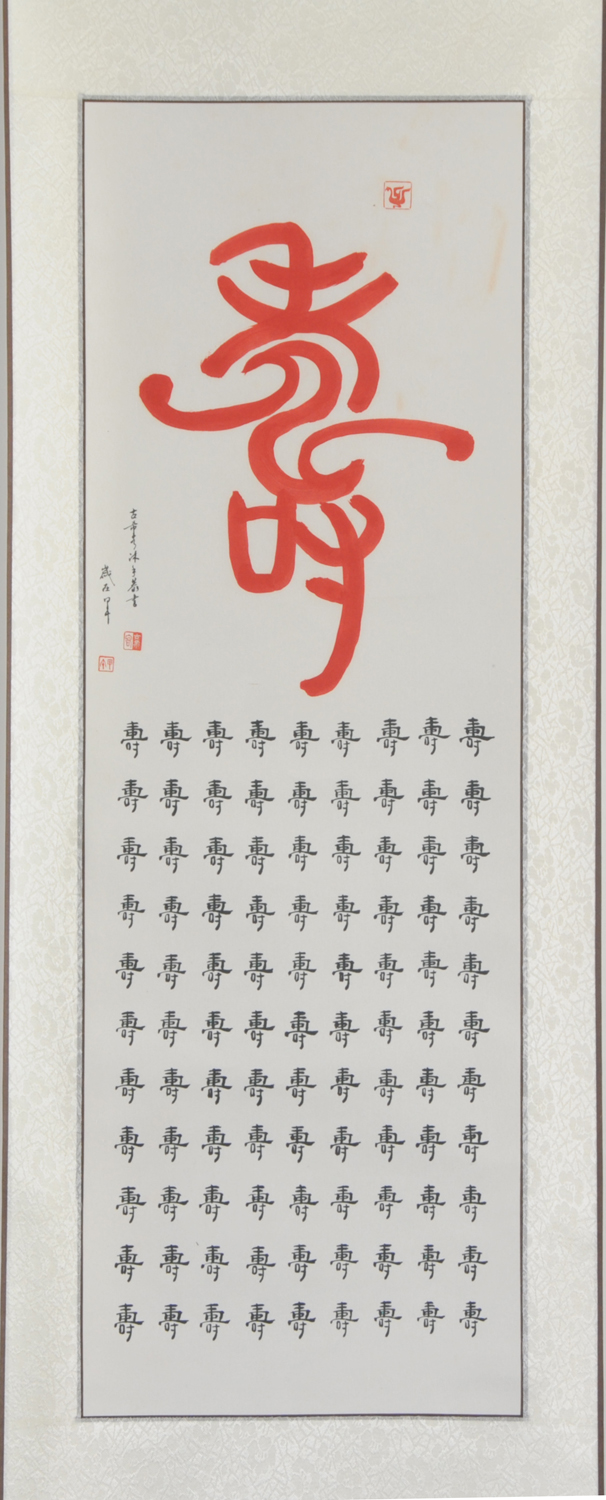 壽
壽壽壽壽壽壽壽壽壽
壽壽壽壽壽壽壽壽壽
壽壽壽壽壽壽壽壽壽
壽壽壽壽壽壽壽壽壽
壽壽壽壽壽壽壽壽壽
壽壽壽壽壽壽壽壽壽
壽壽壽壽壽壽壽壽壽
壽壽壽壽壽壽壽壽壽
壽壽壽壽壽壽壽壽壽
壽壽壽壽壽壽壽壽壽
壽壽壽壽壽壽壽壽壽
古希書
歲在年